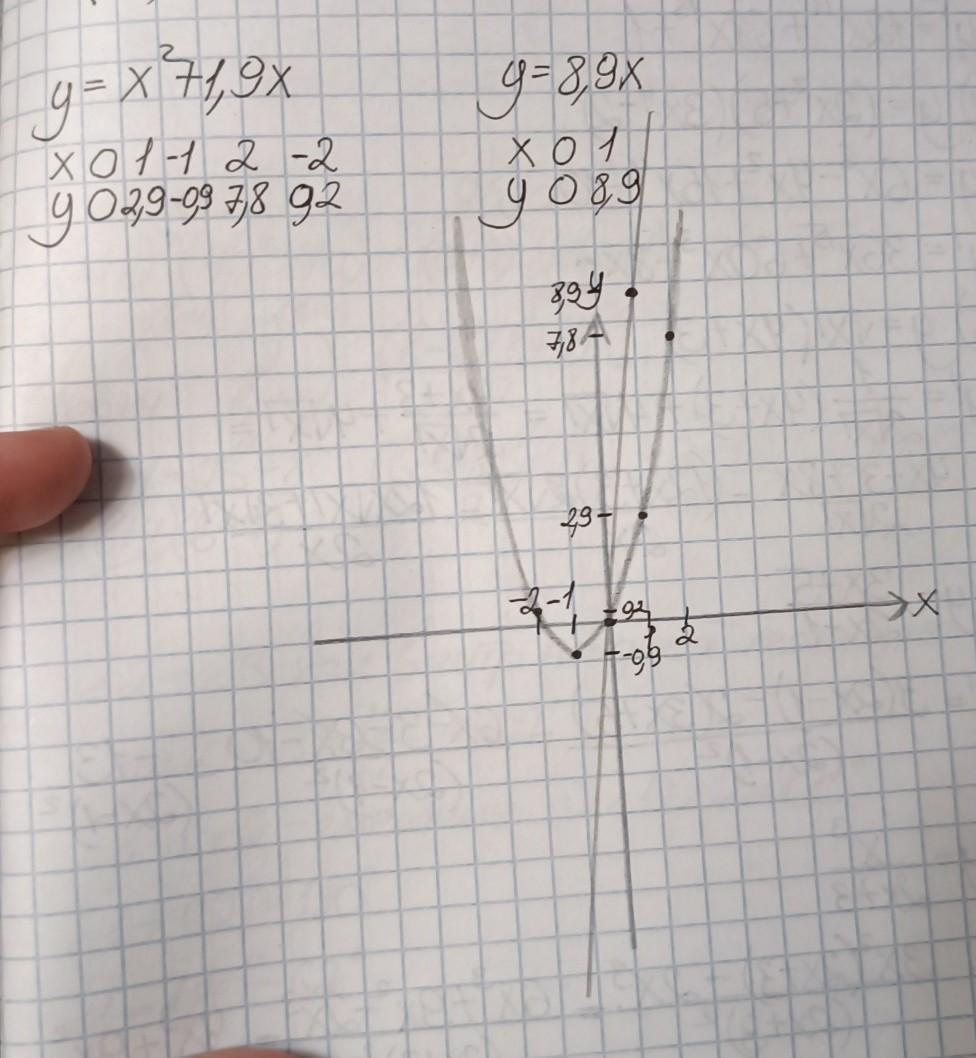 y = x²+1,9x
x 0 1 -1 2 -2
y 0 2,9 -0,9 7,8 0,2
y = 8,9x
x 0 1
y 0 8,9
8,9 y
7,8
2,9
-2 -1 0,2 x
1 2
-0,9